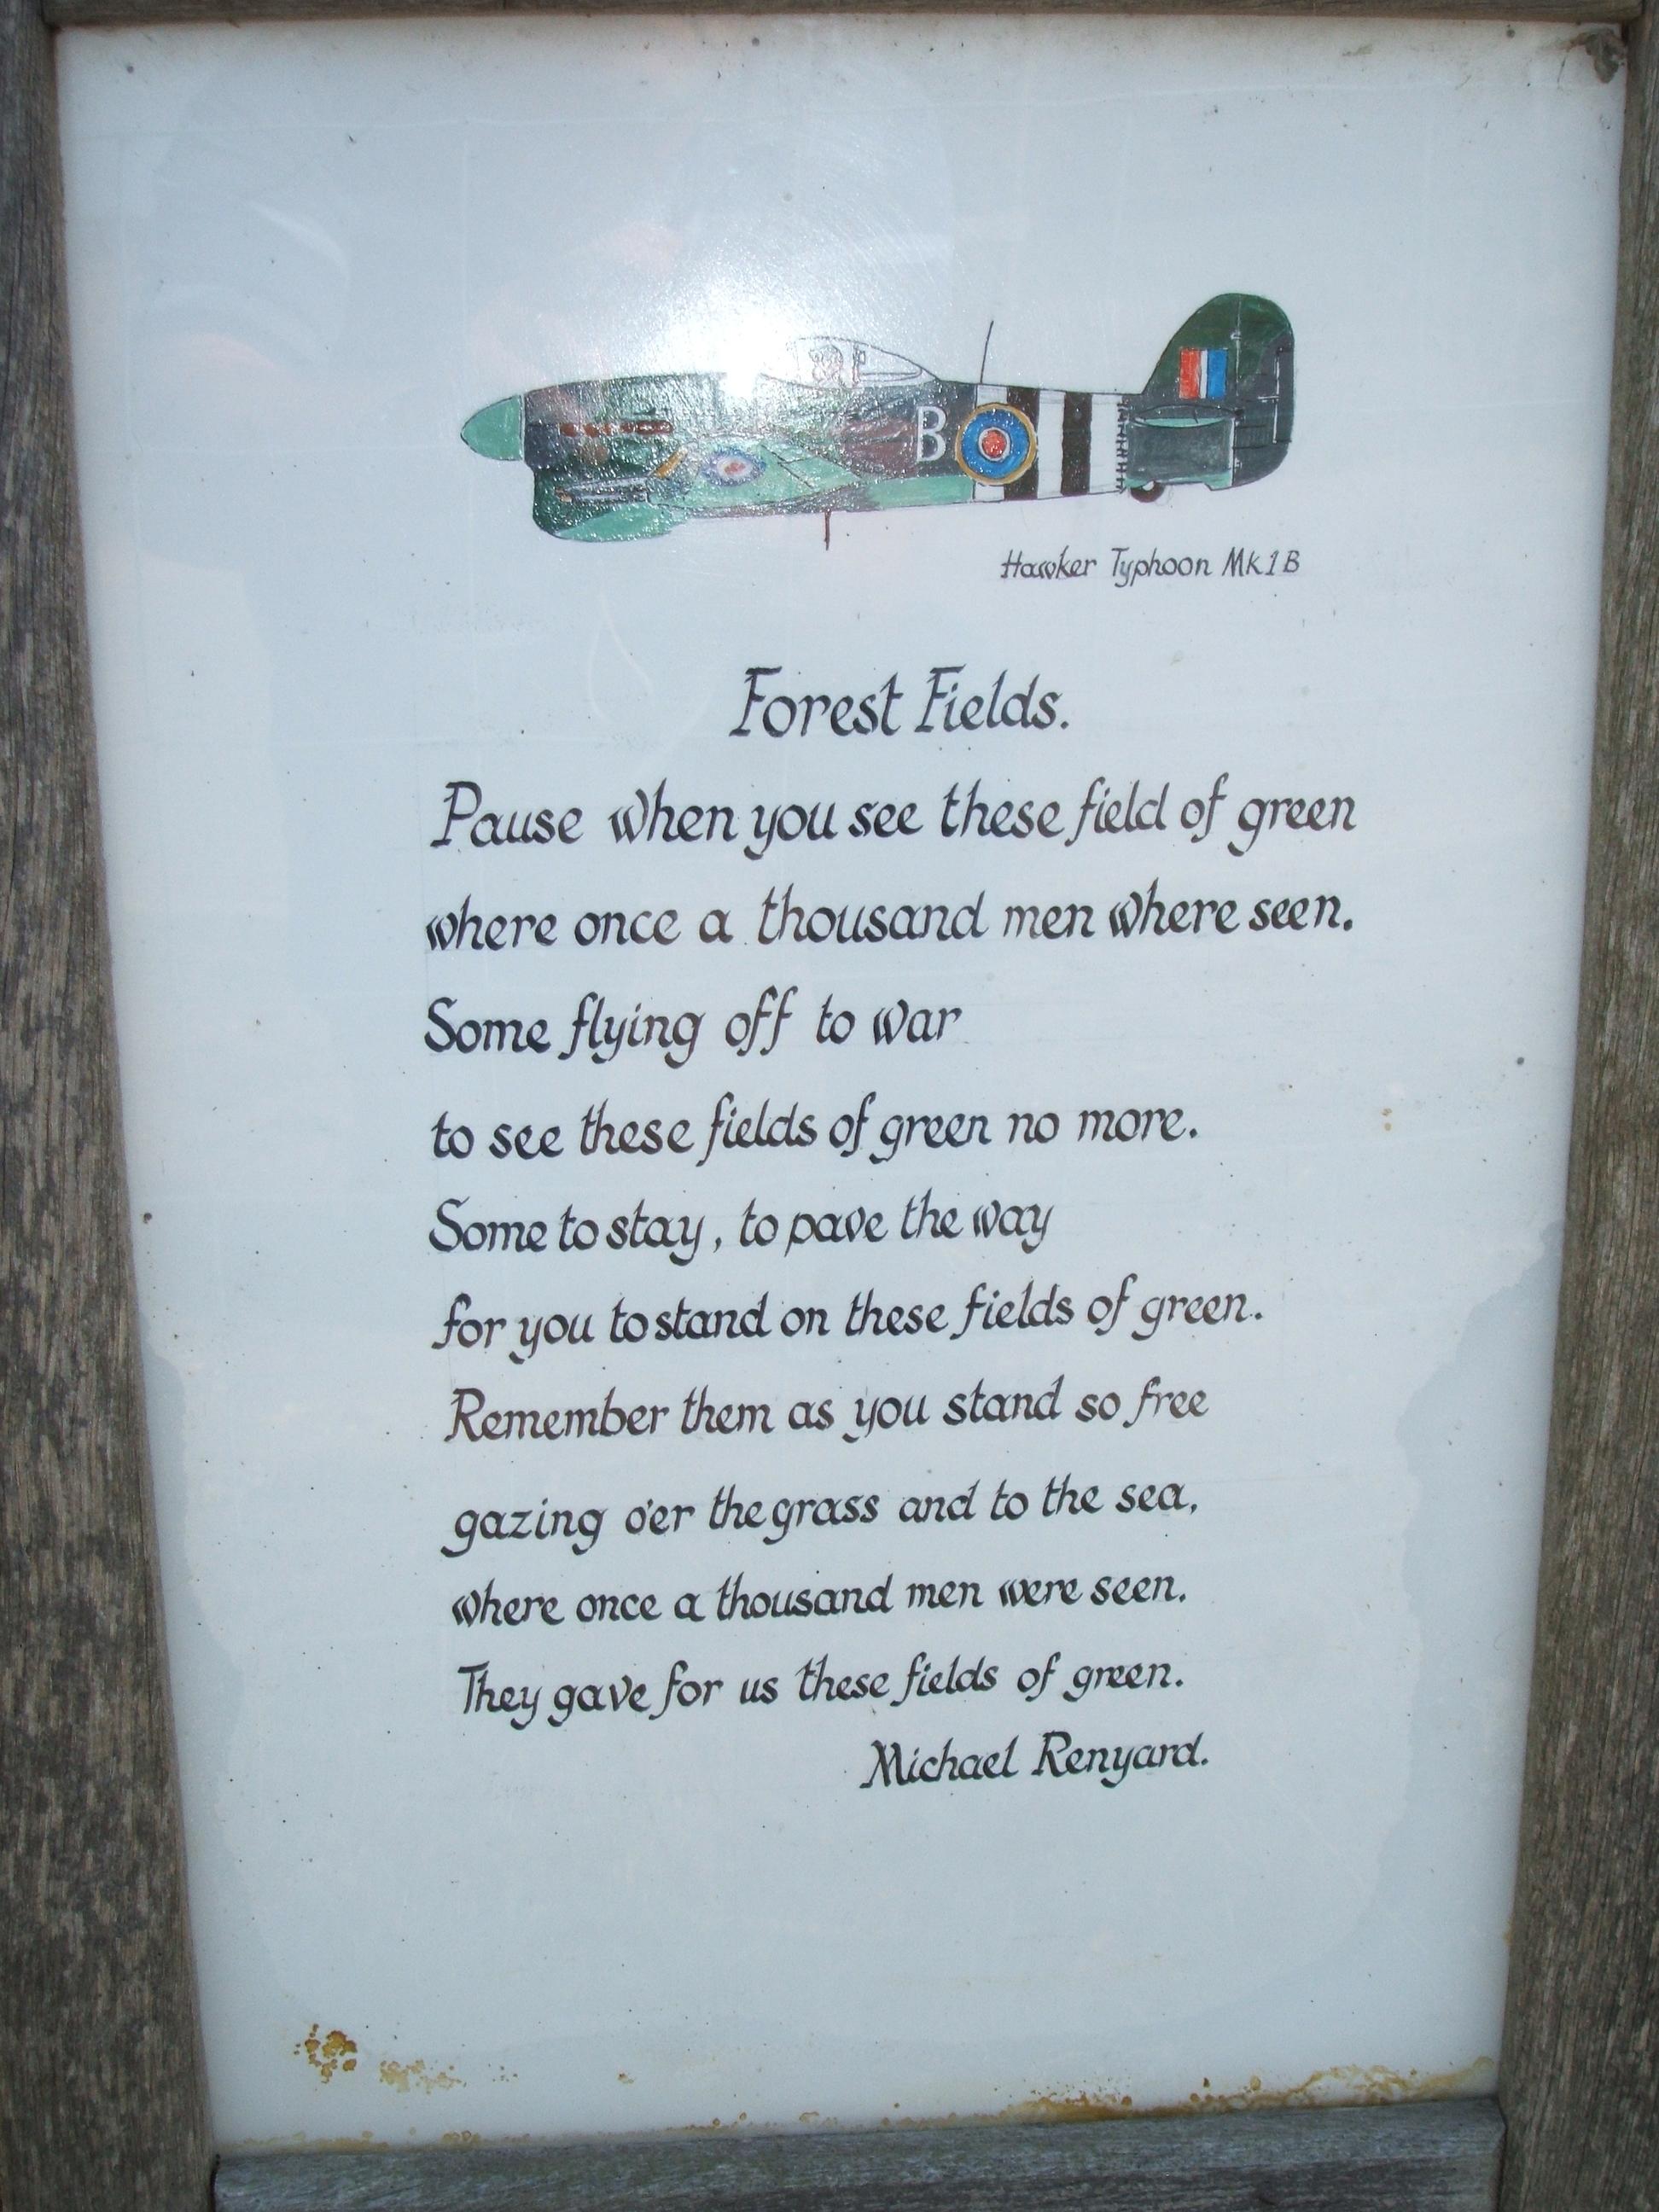 B
Hawker Typhoon Mk1B
Forest Fields.
Pause when you see these field of green
where once a thousand men where seen.
Some flying off to war
to see these fields of green no more.
Some to stay, to pave the way
for you to stand on these fields of green.
Remember them as you stand so free
gazing o'er the grass and to the sea,
where once a thousand men were seen.
They gave for us these fields of green.
Michael Renyard.